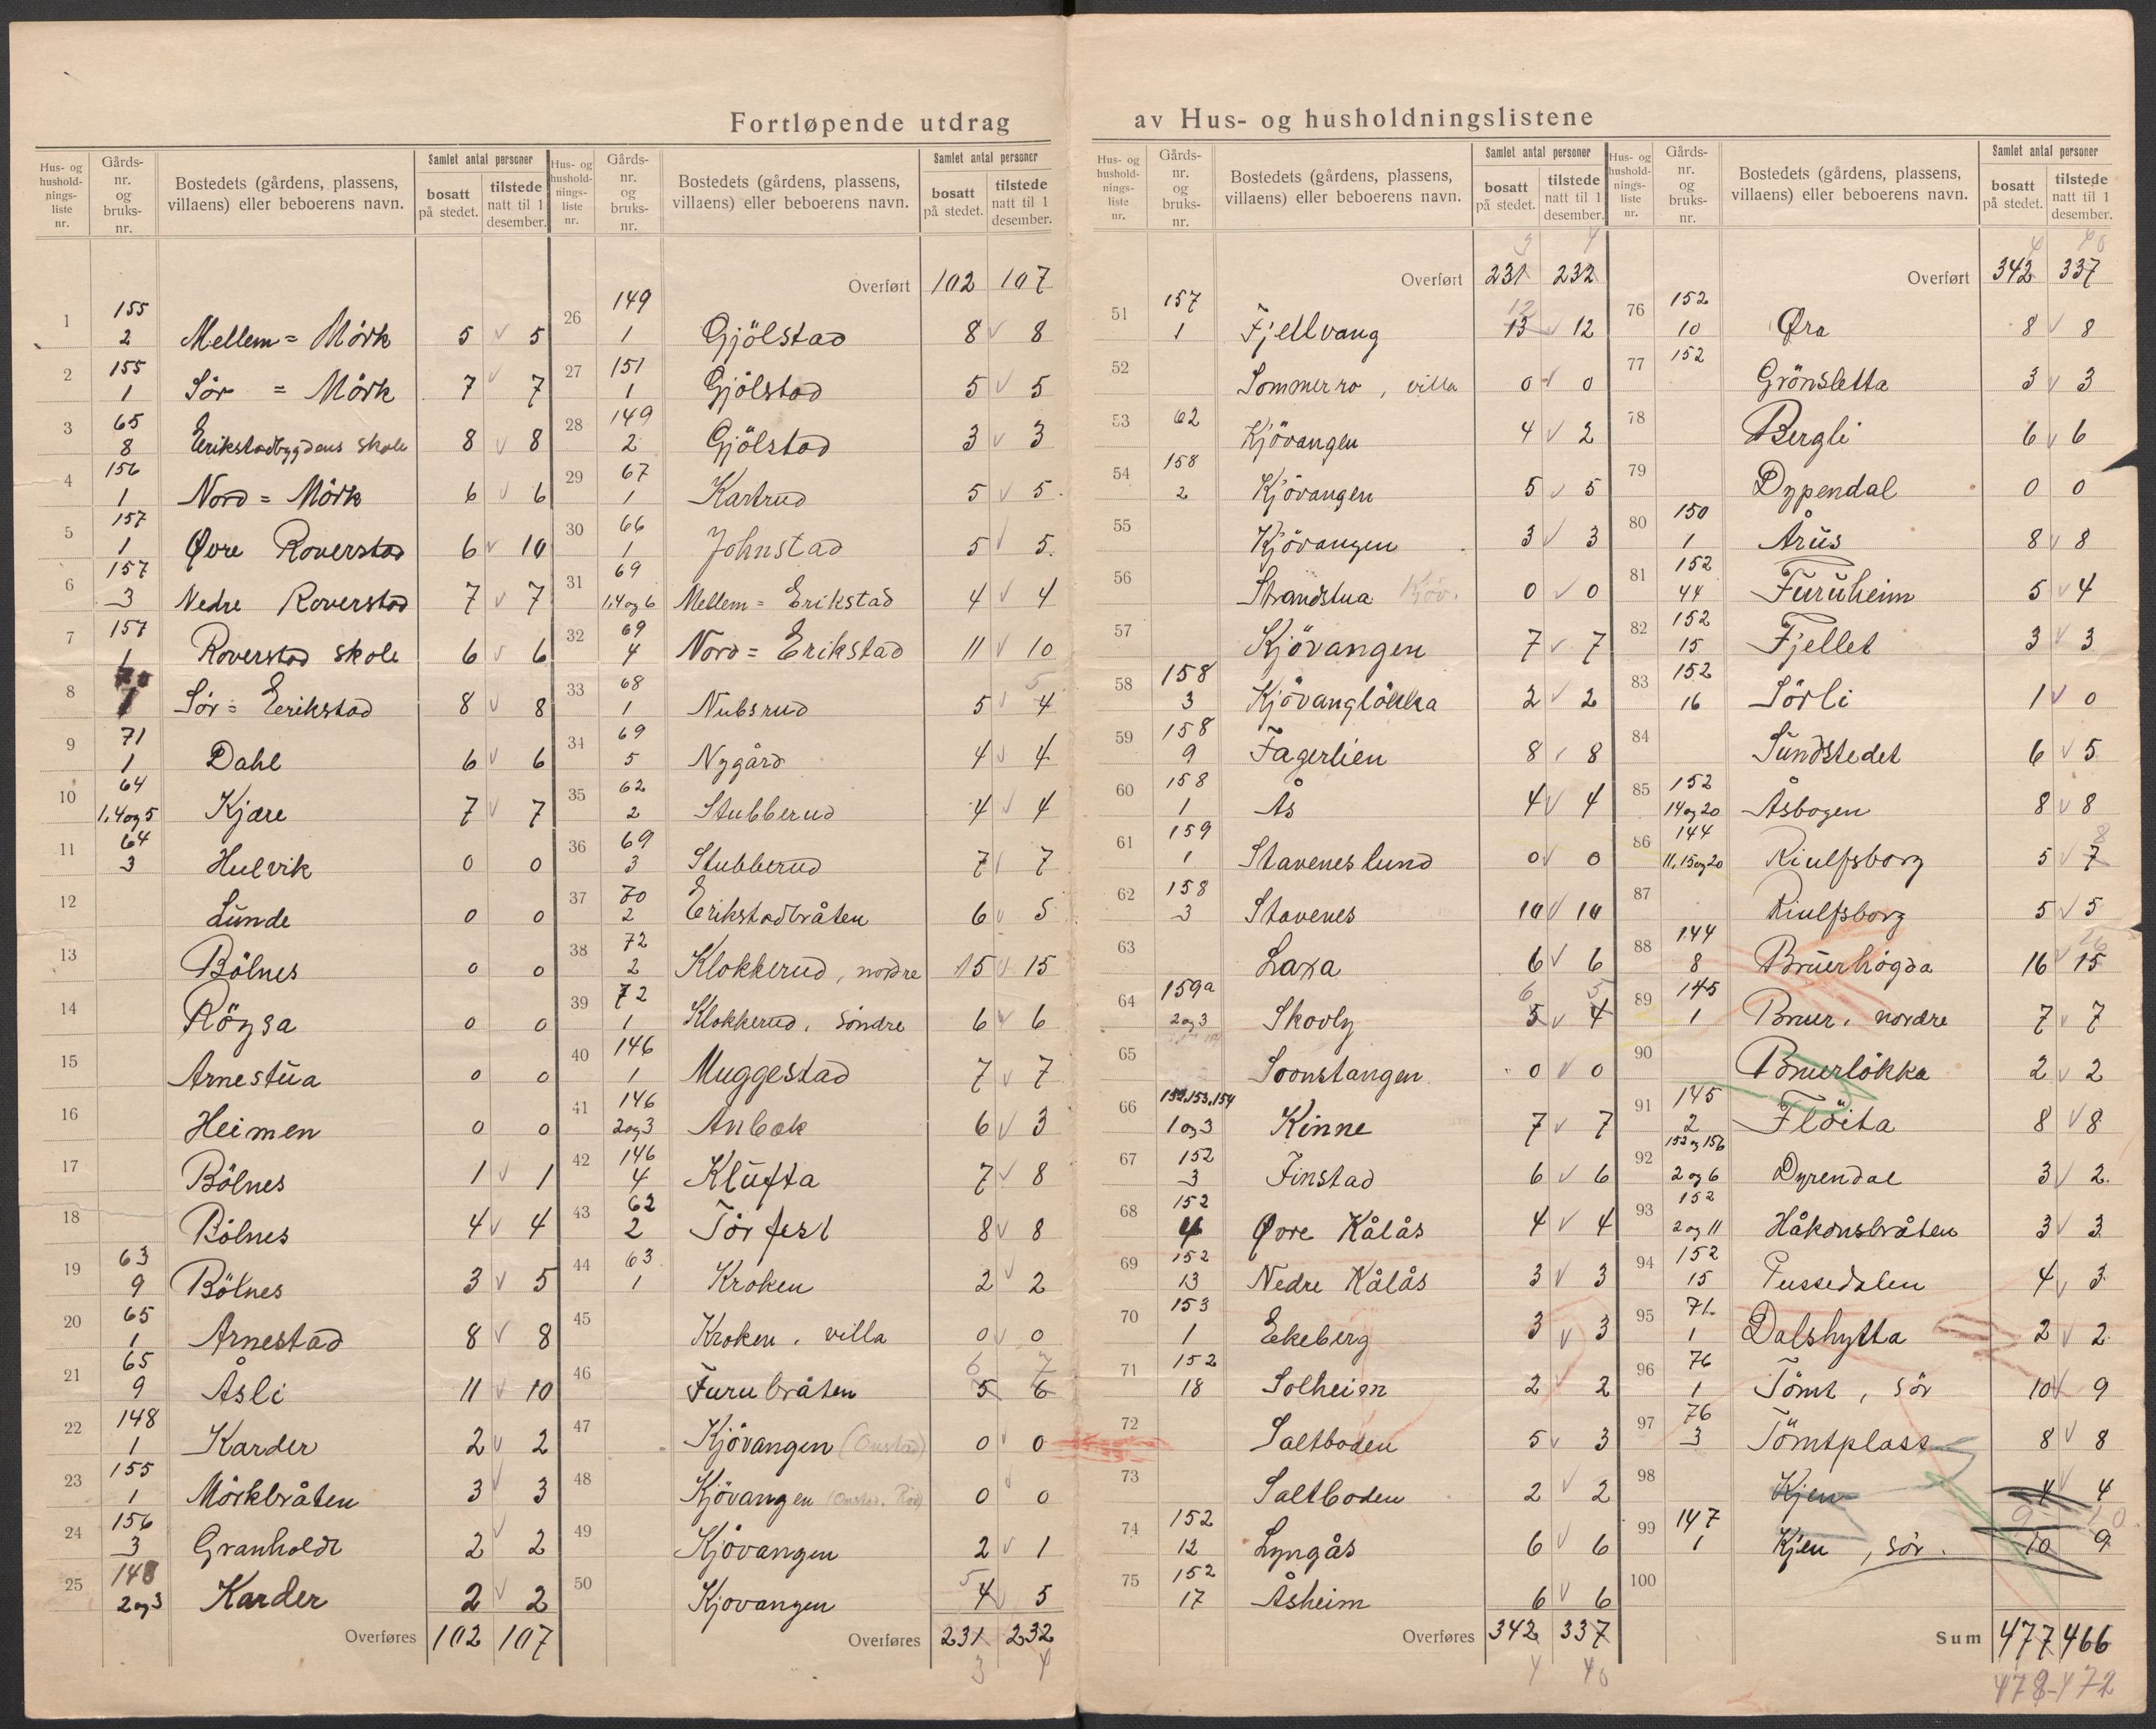 Fortløpende utdrag av Hus- og husholdningslistene
Hus- og hushold-nings-liste nr. | Gårds-nr. og bruks-nr. | Bostedets (gårdens, plassens, villaens) eller beboerens navn. | Samlet antal personer | bosatt på stedet. | tilstede natt til 1 desember.
1 155 2 Mellem = Mörk 5 v 5
2 155 1 Sör = Mörk 7 v 7
3 65 8 Erikstadbygdens skole 8 v 8
4 156 1 Nord = Mörk 6 v 6
5 157 1 Øvre Roverstad 6 v 10
6 157 3 Nedre Roverstad 7 v 7
7 157 1 Roverstad skole 6 v 6
8 70 1 Sör = Erikstad 8 v 8
9 71 1 Dahl 6 v 6
10 64 1,4 og 5 Kjære 7 v 7
11 64 3 Hulvik 0 0
12 Lunde 0 0
13 Bölnes 0 0
14 Röysa 0 0
15 Arnestua 0 0
16 Heimen 0 0
17 Bölnes 1 v 1
18 Bölnes 4 v 4
19 63 9 Bölnes 3 v 5
20 65 1 Arnestad 8 v 8
21 65 9 Åsli 11 v 10
22 148 1 Karder 2 v 2
23 155 1 Mörkbråten 3 v 3
24 156 3 Granholdt 2 v 2
25 148 2 og 3 Karder 2 v 2
Overføres 102 107
Hus- og hushold-nings-liste nr. | Gårds-nr. og bruks-nr. | Bostedets (gårdens, plassens, villaens) eller beboerens navn. | Samlet antal personer | bosatt på stedet. | tilstede natt til 1 desember.
Overført 102 107
26 149 1 Gjölstad 8 v 8
27 151 1 Gjölstad 5 v 5
28 149 2 Gjölstad 3 v 3
29 67 1 Kartrud 5 v 5
30 66 1 Johnstad 5 v 5
31 69 1,4 og 6 Mellem = Erikstad 4 v 4
32 69 4 Nord = Erikstad 11 v 10
33 68 1 Nubsrud 5 v 4 5
34 69 5 Nygård 4 v 4
35 62 2 Stubberud 4 v 4
36 69 3 Stubberud 7 v 7
37 70 2 Erikstadbråten 6 v 5
38 72 2 Klokkerud, nordre 15 v 15
39 72 1 Klokkerud, söndre 6 v 6
40 146 1 Muggestad 7 v 7
41 146 2 og 3 Anbak 6 v 3
42 146 4 Klufta 7 v 8
43 62 2 Törfest 8 v 8
44 63 1 Kroken 2 v 2
45 Kroken, villa 0 v 0
46 Furubråten 5 6 6 7
47 Kjövangen (Onstad) 0 v 0
48 Kjövangen (Onstad, Röd) 0 v 0
49 Kjövangen 2 v 1
50 Kjövangen 4 v 5 5
Overføres 231 232
3 4
Hus- og hushold-nings-liste nr. | Gårds-nr. og bruks-nr. | Bostedets (gårdens, plassens, villaens) eller beboerens navn. | Samlet antal personer | bosatt på stedet. | tilstede natt til 1 desember.
3 4
Overført 231 232
51 157 1 Fjellvang 13 v 12 12
52 Sommerro, villa 0 v 0
53 62 Kjövangen 4 v 2
54 158 2 Kjövangen 5 v 5
55 Kjövangen 3 v 3
56 Strandstua Kjöv. 0 v 0
57 Kjövangen 7 v 7
58 158 3 Kjövanglökka 2 v 2
59 158 9 Fagerlien 8 v 8
60 158 1 Ås 4 v 4
61 159 1 Staveneslund 0 v 0
62 158 3 Stavenes 10 v 10
63 Laxa 6 v 6
64 159a 2 og 3 Skovly 5 v 4 6 5
65 Soonstangen 0 v 0
66 152,153,154 1 og 3 Kinne 7 v 7
67 152 3 Finstad 6 v 6
68 152 4 Øvre Kålås 4 v 4
69 152 13 Nedre Kålås 3 v 3
70 153 1 Ekeberg 3 v 3
71 152 18 Solheim 2 v 2
72 Saltboden 5 v 3
73 Saltboden 2 v 2
74 152 12 Lyngås 6 v 6
75 152 17 Åsheim 6 v 6
Overføres 342 337
4 40
Hus- og hushold-nings-liste nr. | Gårds-nr. og bruks-nr. | Bostedets (gårdens, plassens, villaens) eller beboerens navn. | Samlet antal personer | bosatt på stedet. | tilstede natt til 1 desember.
4 40
Overført 342 337
76 152 10 Øra 8 v 8
77 152 Grönsletta 3 v 3
78 Bergli 6 v 6
79 Dypendal 0 0
80 150 1 Årus 8 v 8
81 152 44 Furuheim 5 v 4
82 152 15 Fjellet 3 v 3
83 152 16 Sörli 1 v 0
84 Sundstedet 6 v 5
85 152 14 og 20 Åsbogen 8 v 8
86 144 11,15 og 20 Riulfsborg 5 v 7 8
87 Riulfsborg 5 v 5
88 144 8 Bruerhögda 16 v 15 16
89 145 1 Bruer, nordre 7 v 7
90 Bruerlökka 2 v 2
91 145 2 Flöita 8 v 8
92 152 og 156 2 og 6 Dyrendal 3 v 2
93 152 2 og 11 Håkonsbråten 3 v 3
94 152 15 Tussedalen 4 v 3
95 71 1 Dalshytta 2 v 2
96 76 1 Tömt, sör 10 v 9
97 76 3 Tömtplass 8 v 8
98 Kjen 4 v 4
99 147 1 Kjen, sör. 10 9 9 10
100
Sum 477 466
478-472